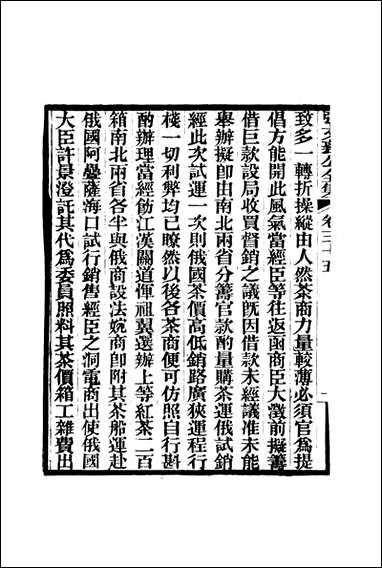 致多一轉折操縱由人然茶商力量較薄必須官爲提
倡方能開此風氣當經臣等往返函商臣大澂前擬籌
借巨款設局收買督銷之議旣因借款未經議准未能
舉辦擬卽由南北兩省分籌官款酌量購茶運俄試銷
經此次試運一次則俄國茶價高低銷路廣狹運程行
棧一切利弊均已瞭然以後各茶商便可仿照自行斟
酌辦理當經飭江漢關道惲祖翼選辦上等紅茶二百
箱南北兩省各半與俄商設法婉商卽附其茶船運赴
俄國阿疊薩海口試行銷售經臣之洞電商出使俄國
大臣許景澄託其代爲委員照料其茶價箱工雜費出